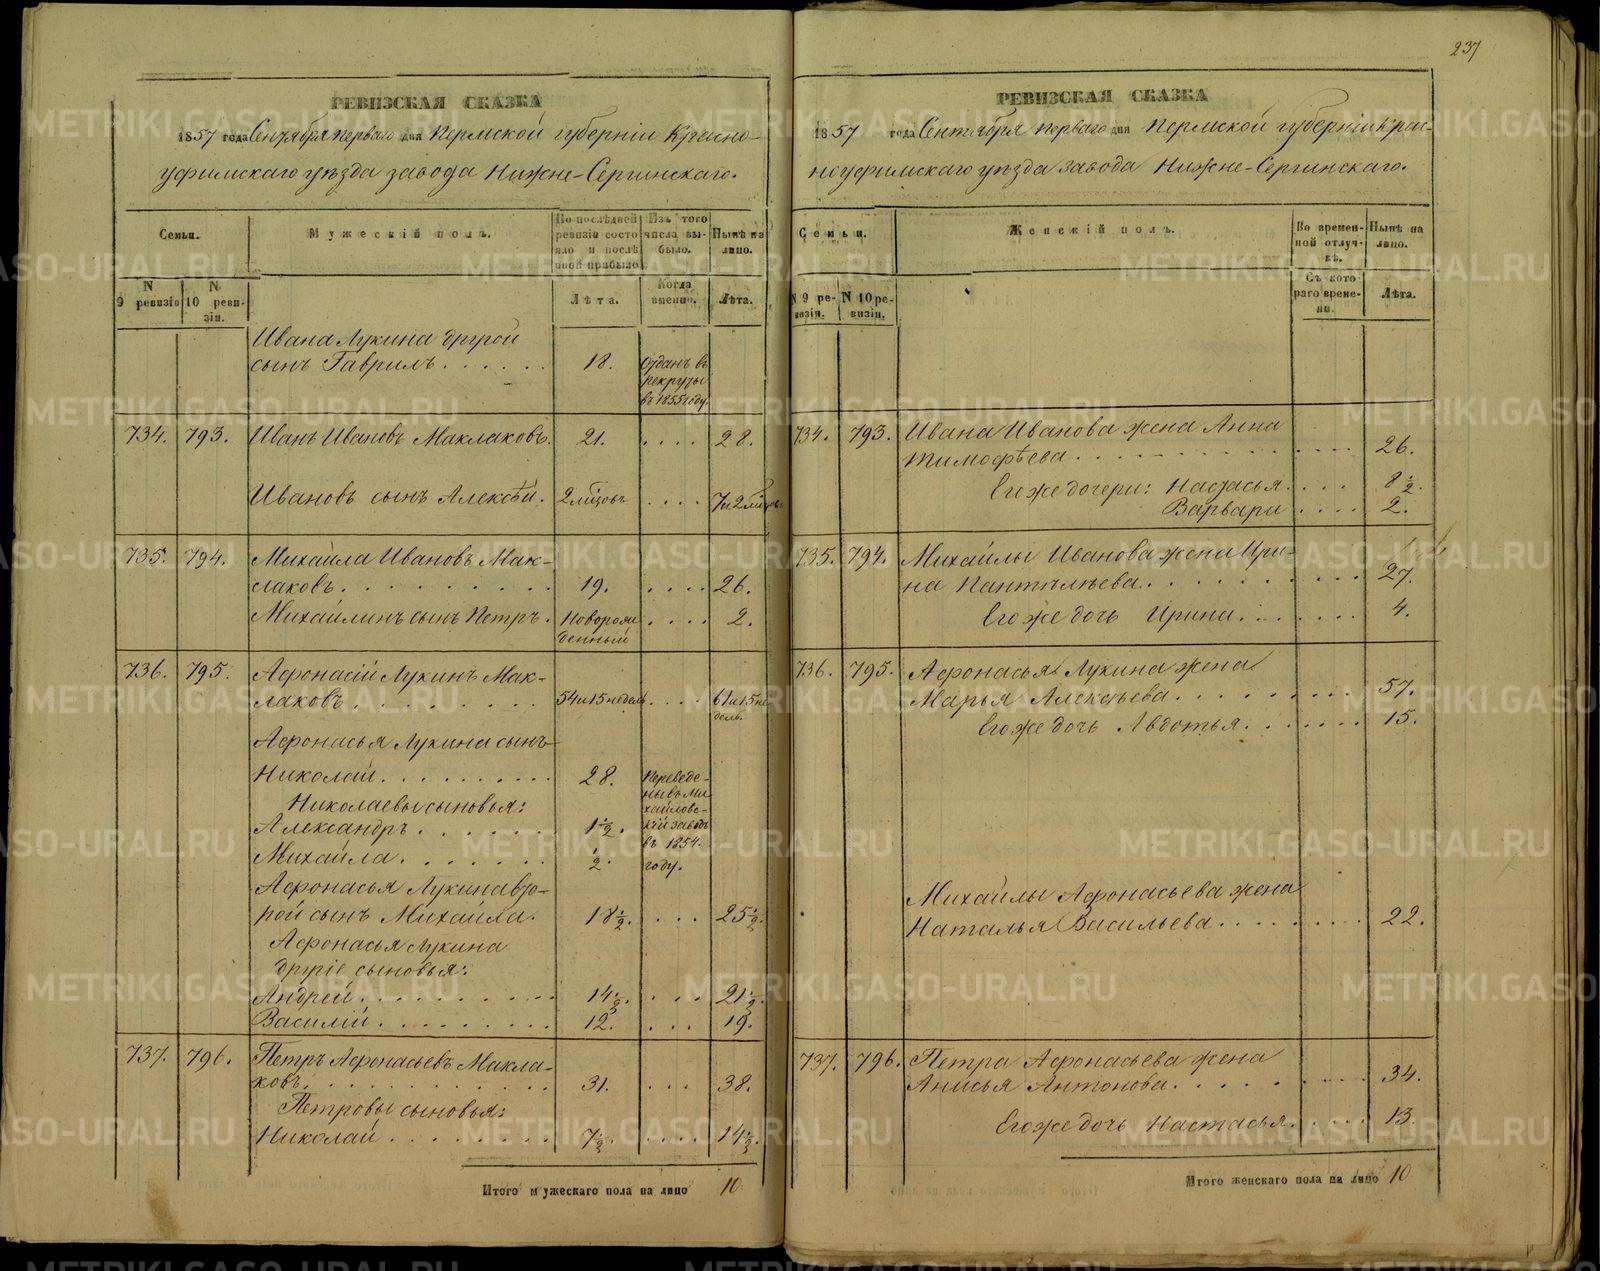 237
РЕВИЗСКАЯ СКАЗКА
1857 года Сентября перваго дня Пермской губерніи Красно-
уфимскаго уѣзда завода Нижне-Сергинскаго.
Семьи.
Мужескій полъ.
По послѣдней ревизіи состояло и послѣ оной прибыло
Изъ того числа выбыло.
Нынѣ на лицо.
N 9 ревизіи
N 10 ревизіи.
Лѣта.
Когда именно.
Лѣта.
Ивана Лукина другой
сынъ Гаврилъ . . . . . . 18. Отданъ въ рекруты въ 1855 году.
734. 793. Иванъ Ивановъ Маклаковъ. 21. . . . . 28.
Ивановъ сынъ Алексѣй. 2 мѣсц. . . . . 7 и 2 мѣсц.
735. 794. Михайла Ивановъ Мак-
лаковъ. . . . . . . . . . 19. . . . . 26.
Михайлинъ сынъ Петръ. Новорожденный . . . . 2.
736. 795. Афонасій Лукинъ Мак-
лаковъ. . . . . . . . . 54 и 15 недель . . . . 61 и 15 недель.
Афонасья Лукина сынъ
Николай. . . . . . . . . . 28. Переведены въ Михайловскій заводъ въ 1854 году.
Николаевы сыновья:
Александръ. . . . . . . 1 1/2.
Михайла. . . . . . . 1/2.
Афонасья Лукина вто-
рой сынъ Михайла. 18 1/2. . . . 25 1/2.
Афонасья Лукина
другіе сыновья:
Андрей. . . . . . . . . . 14 1/2. . . . . 21 1/2.
Василій. . . . . . . . . 12. . . . 19.
737. 796. Петръ Афонасьевъ Макла-
ковъ. . . . . . . . . . . . 31. . . . 38.
Петровы сыновья:
Николай . . . . . . . . 7 1/2. . . . . 14 1/2.
Итого мужескаго пола на лицо 10
РЕВИЗСКАЯ СКАЗКА
1857 года Сентября перваго дня Пермской губерніи Крас-
ноуфимскаго уѣзда завода Нижне-Сергинскаго.
Семьи.
Женскій полъ.
Во временной отлучкѣ.
Нынѣ на лицо.
N 9 ревизіи.
N 10 ревизіи.
Съ котораго времени.
Лѣта.
734. 793. Ивана Иванова жена Анна
Тимофѣева. . . . . . . . . . . . . . 26.
Его же дочери: Настасья. . . . 8 1/2.
Варвара . . . . 2.
735. 794. Михайлы Иванова жена Ири-
на Пантѣлѣева. . . . . . . . . . . 27.
Его же дочь Ирина. . . . . . . 4.
736. 795. Афонасья Лукина жена
Марья Алексѣева. . . . . . . . . 57.
Его же дочь Авдотья. . . . . . . 15.
Михайлы Афонасьева жена
Наталья Васильева. . . . . . . . 22.
737. 796. Петра Афонасьева жена
Анисья Антонова. . . . . . . . . 34.
Его же дочь Настасья. . . . . 13.
Итого женскаго пола на лицо 10
METRIKI.GASO-URAL.RU